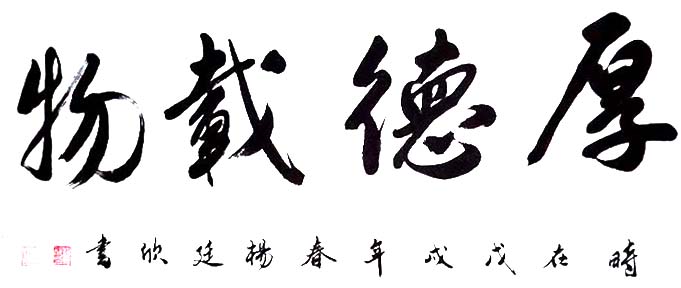 厚德載物
時在戊戌年春楊廷欣書